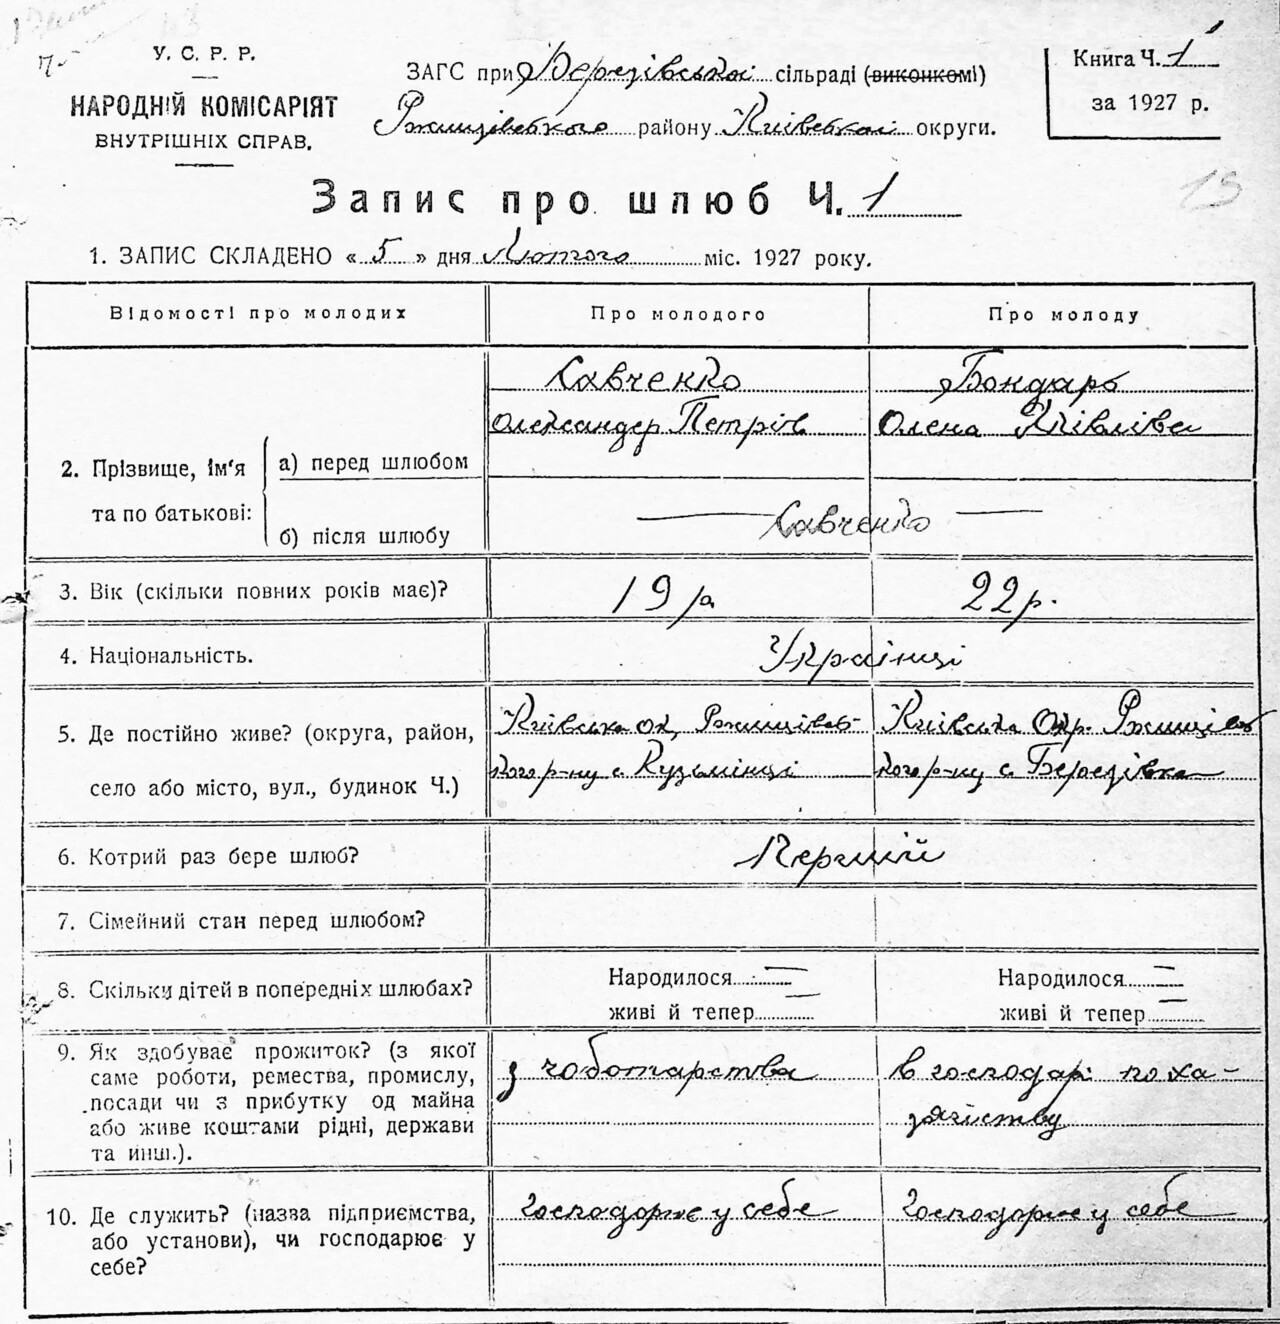 У. С. Р. Р.
НАРОДНІЙ КОМІСАРІЯТ
ВНУТРІШНІХ СПРАВ.
ЗАГС при Березівській сільраді (виконкомі)
Ржищівського району Київської округи.
Книга Ч. 1
за 1927 р.
19
Запис про шлюб Ч. 1
1. ЗАПИС СКЛАДЕНО « 5 » дня Лютого міс. 1927 року.
Відомості про молодих
Про молодого
Про молоду
2. Прізвище, ім'я та по батькові:
а) перед шлюбом
Савченко
Олександер Петрів
Бондарь
Олена
б) після шлюбу
Савченко
3. Вік (скільки повних років має)?
19 р.
22 р.
4. Національність.
Українці
5. Де постійно живе? (округа, район,
село або місто, вул., будинок Ч.)
Київська ок, Ржищівсь
кого р-ну с. Кузьмінці
Київська Окр. Ржищівсь
кого р-ну с. Березівка
6. Котрий раз бере шлюб?
Перший
7. Сімейний стан перед шлюбом?
8. Скільки дітей в попередніх шлюбах?
Народилося —
живі й тепер —
Народилося —
живі й тепер —
9. Як здобуває прожиток? (з якої
саме роботи, ремества, промислу,
посади чи з прибутку од майна
або живе коштами рідні, держави
та инш.).
з чоботарства
в господарі по ха-
зяйству
10. Де служить? (назва підприємства,
або установи), чи господарює у
себе?
Господорює у себе
Господорює у себе